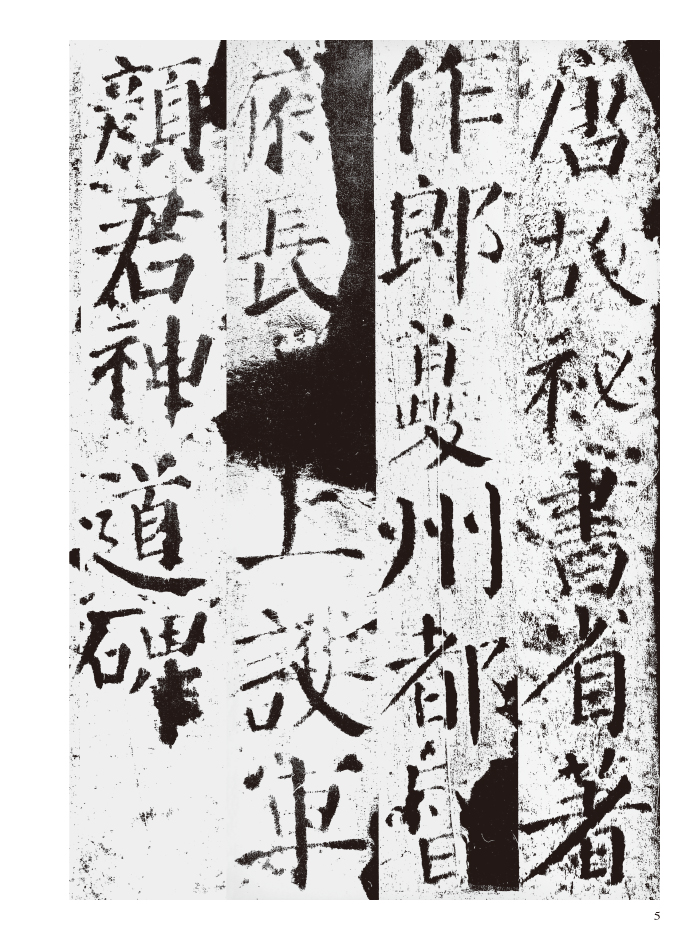 唐故祕書省著
作郎夔州都督
府長上護軍
顏君神道碑
5